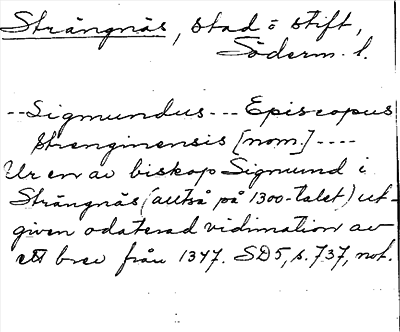 Strängnäs, stad o stift,
Söderm. l.
--Sigmundus--- Episcopus
strenginensis [nom.] ----
Ur en av biskop Sigmund i
Strängnäs (alltså på 1300-talet) ut-
given odaterad vidimation av
ett brev från 1347. SD5, s. 737, not.